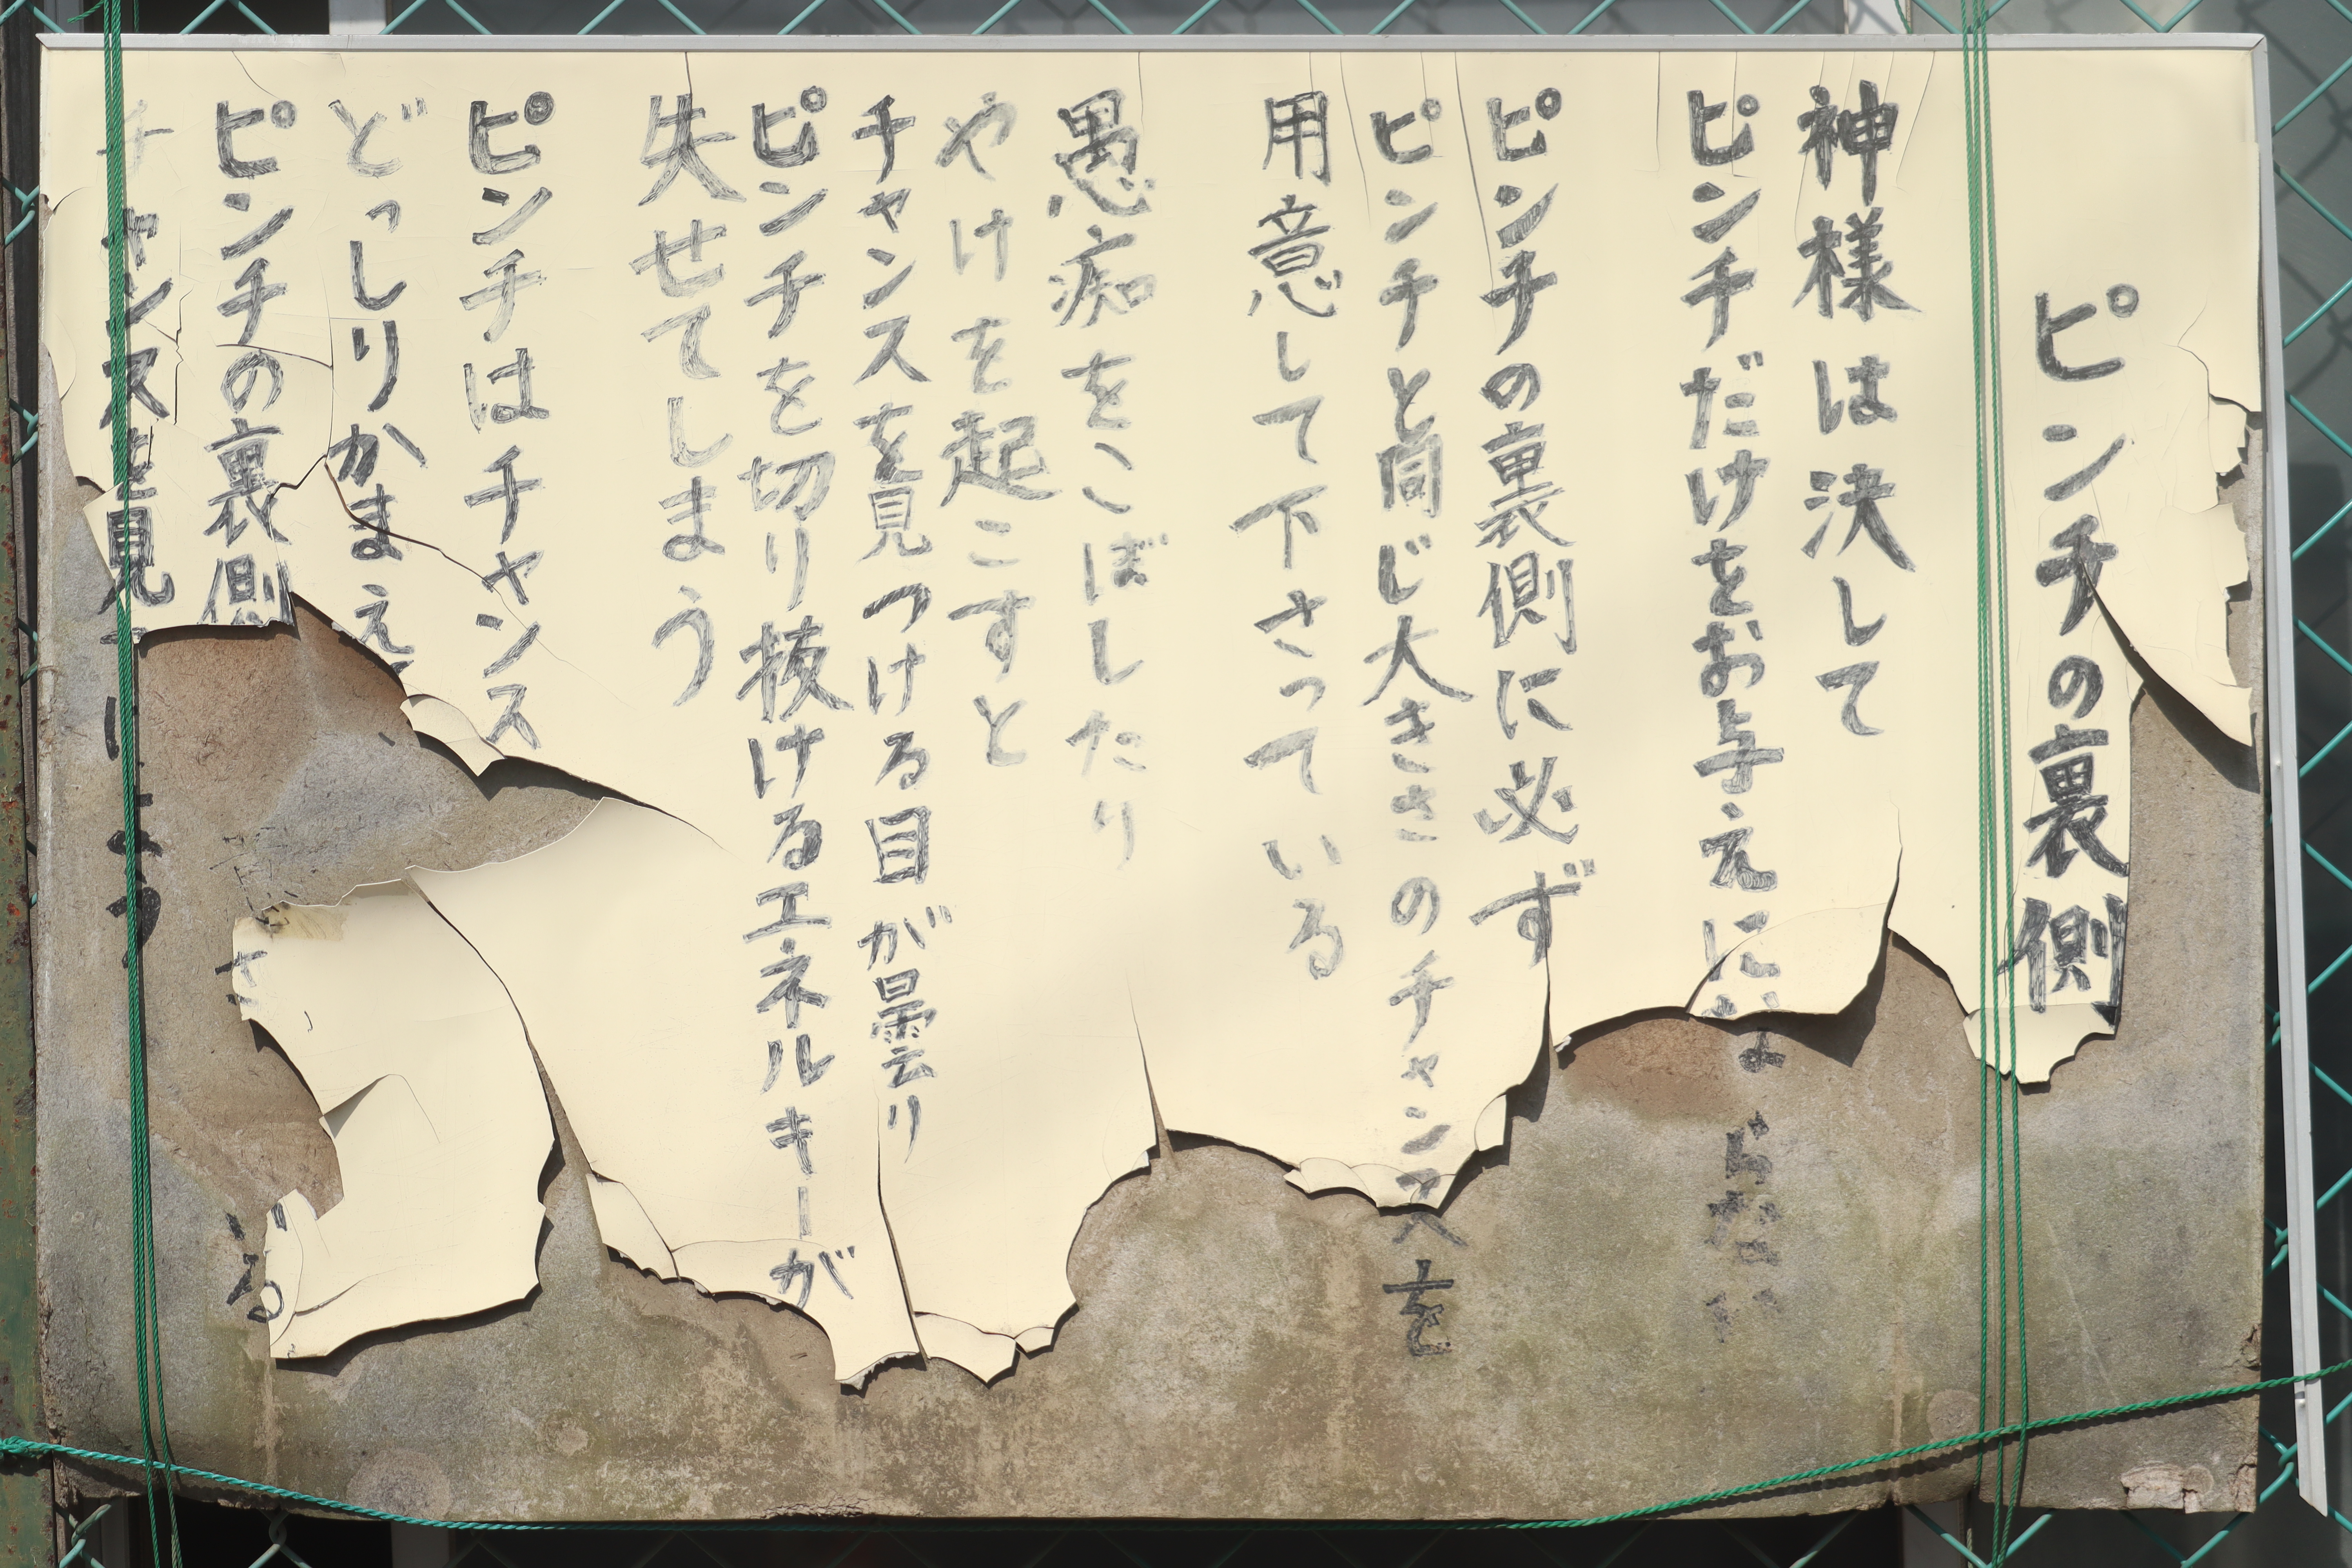 ピンチの裏側
神様は決して
ピンチだけをお与えにならない
ピンチの裏側に必ず
ピンチと同じ大きさのチャンスを
用意して下さっている
愚痴をこぼしたり
やけを起こすと
チャンスを見つける目が曇り
ピンチを切り抜けるエネルギーが
失せてしまう
ピンチはチャンス
どっしりかまえ
ピンチの裏側
チャンスを見